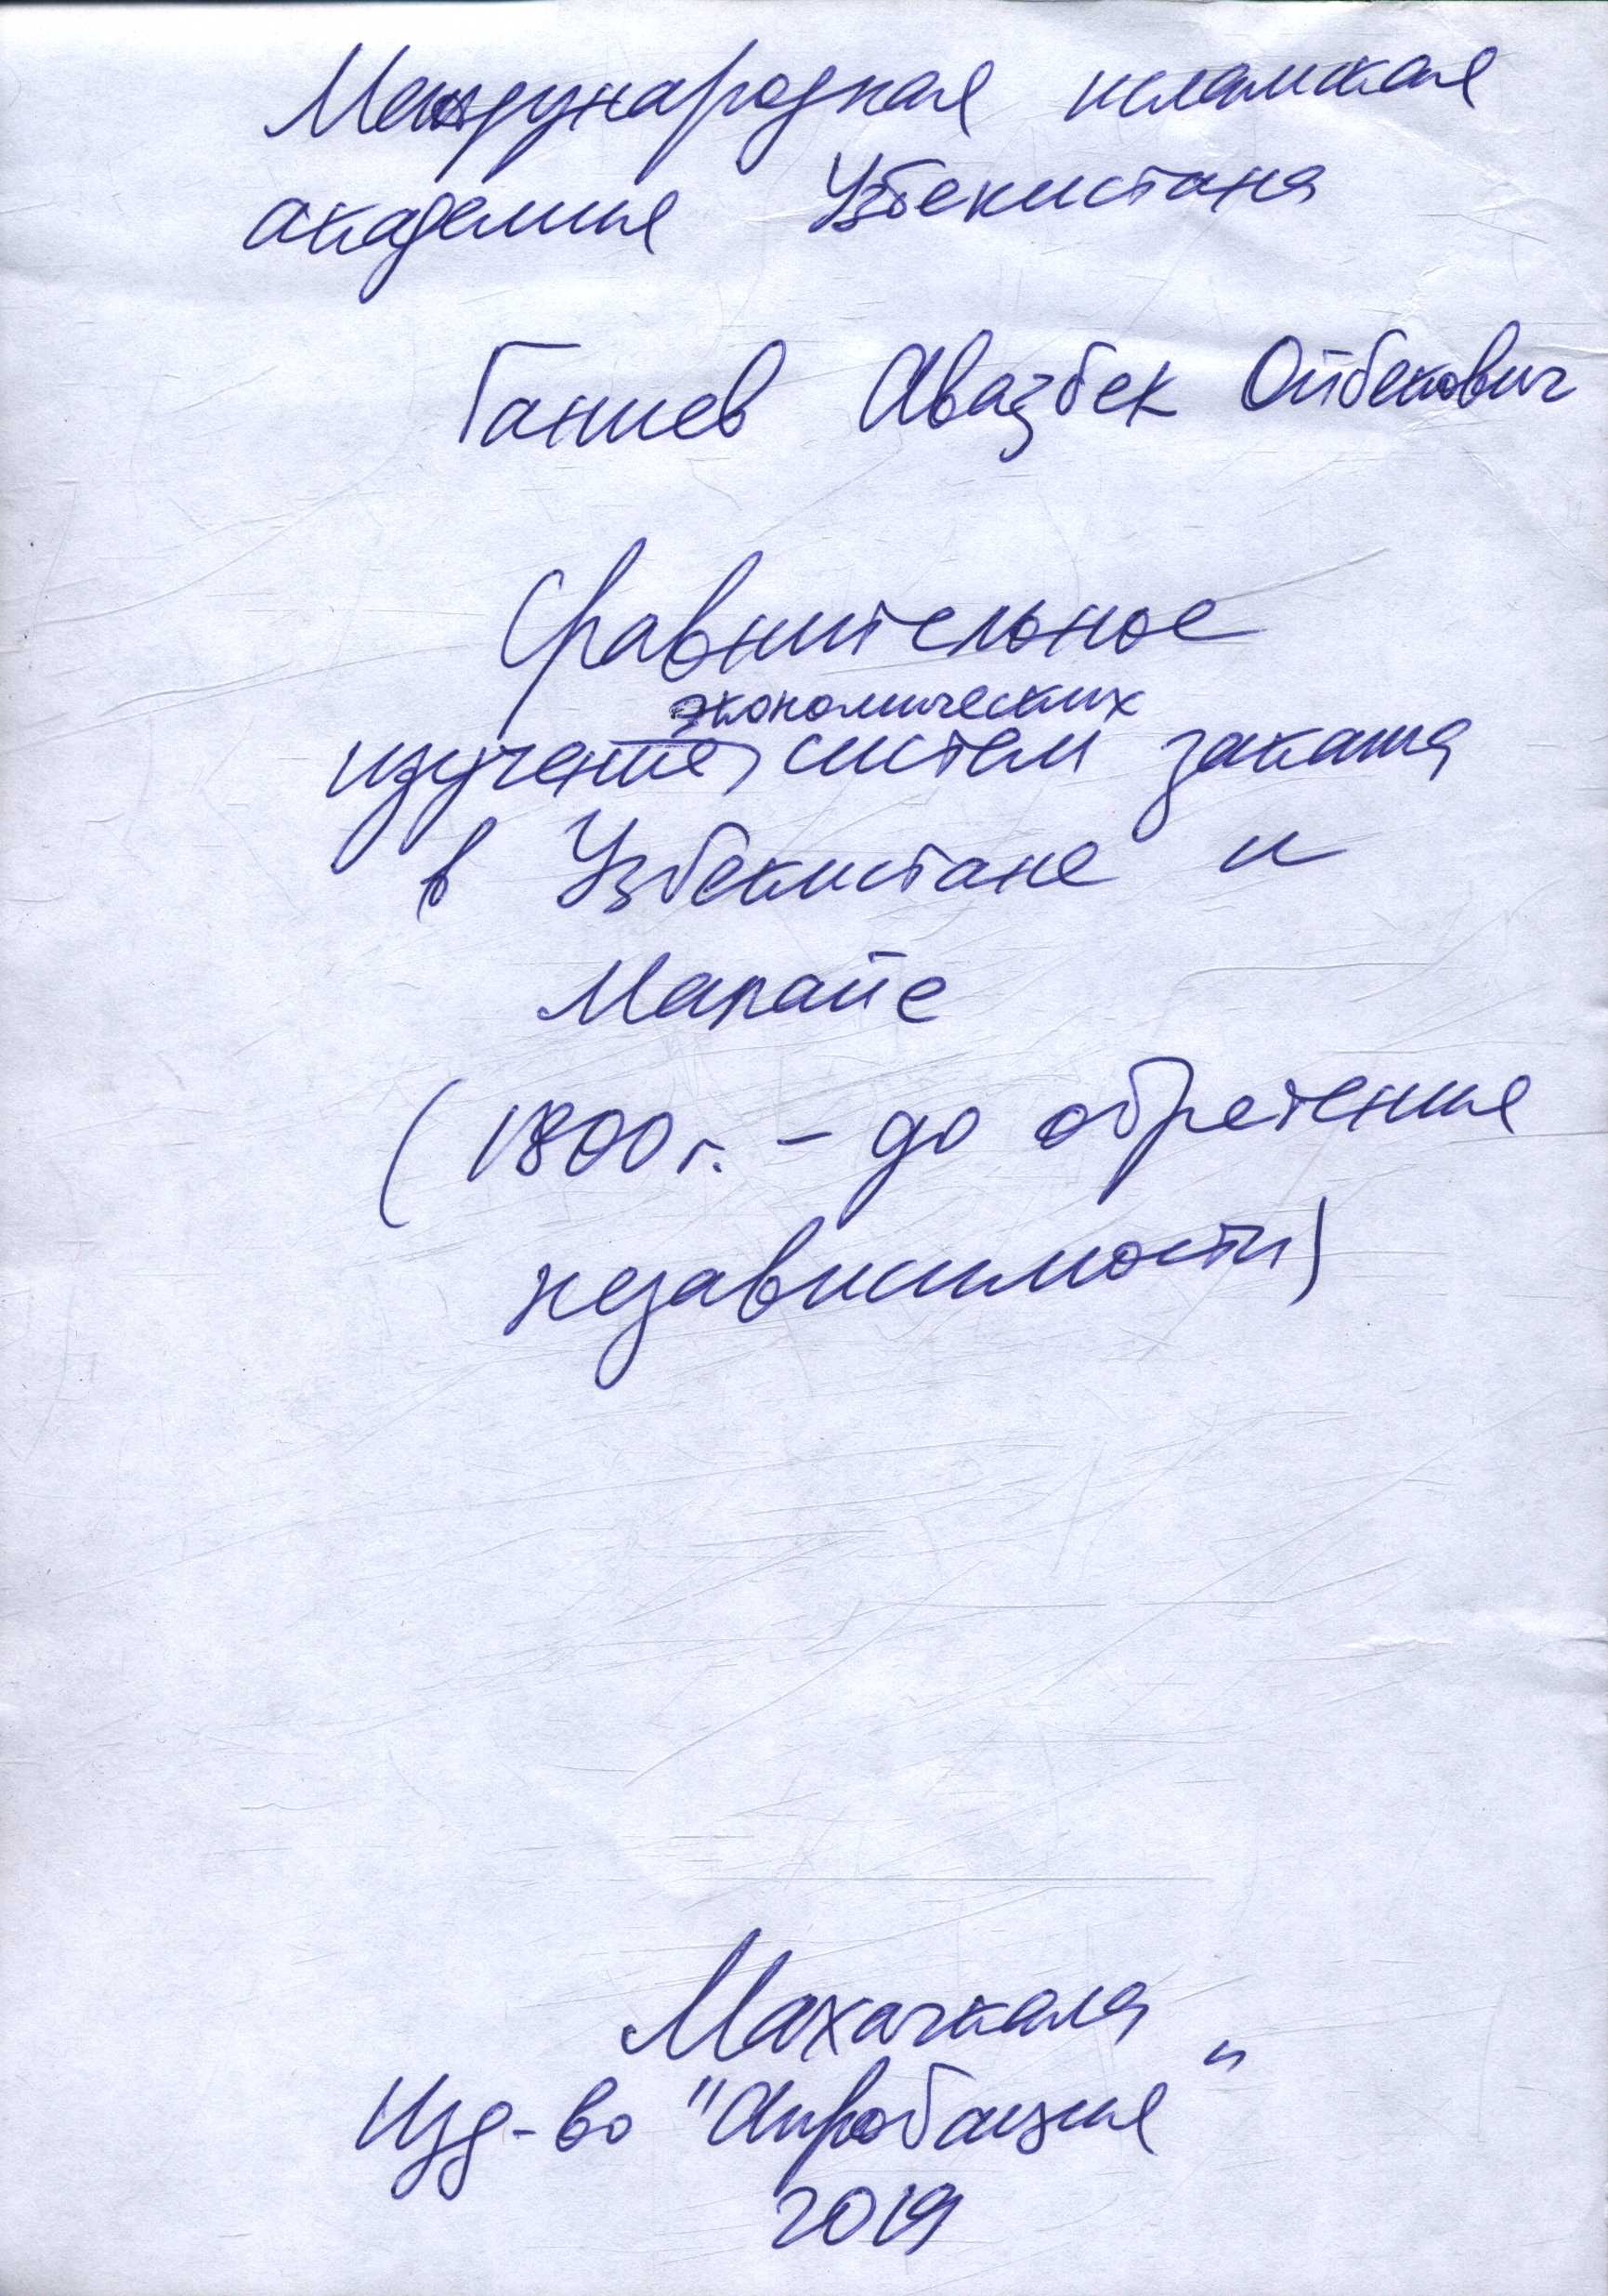 Международная исламская
академия Узбекистана
Ганиев Авазбек Ойбекович
Сравнительное
экономических
изучение, систем заката
в Узбекистане и
Малайе
(1800 г. – до обретения
независимости)
Махачкала
Изд-во "Апробация"
2019